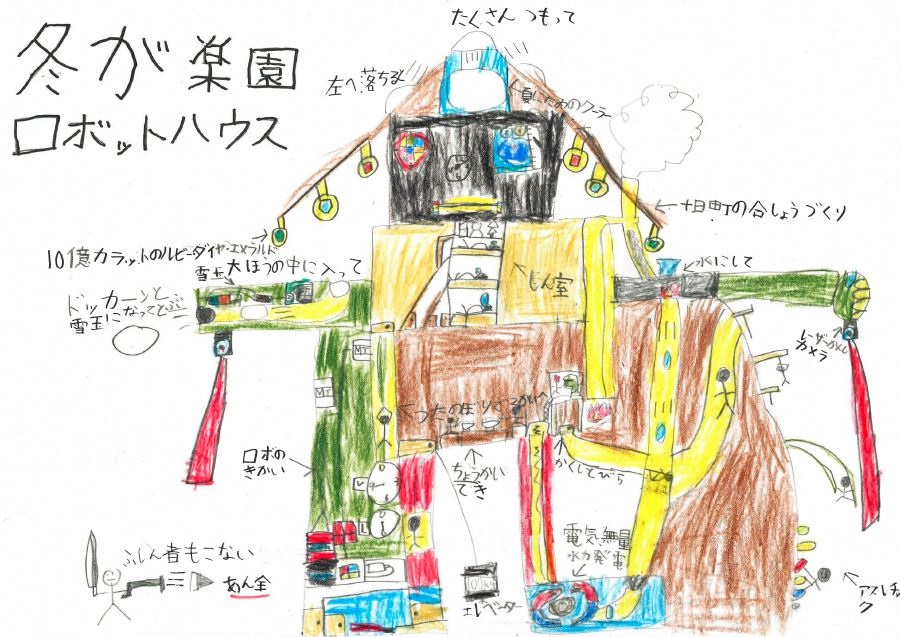 冬が楽園
ロボットハウス
たくさんつもって
左へ落ちる
夏にためのクーラー
十日町の合しょうづくり
10億カラットのルビーダイヤ・エメラルド
雪玉大ほうの中に入って
ドッカーンと
雪玉になってとぶ
水にして
レーザーがんし
カメラ
つたのぼりで2かいへ
ロボの
きかい
ちょうかい
てき
かくしとびら
電気無量
水力発電
エレベーター
アスレチッ
ク
ふしん者もこない
あん全